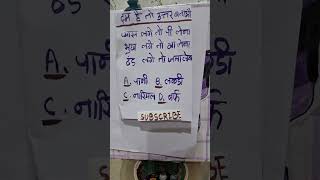 दम है तो उत्तर बताओ
प्यास लगे तो पी लेना
भूख लगे तो खा लेना
ठंड लगे तो जला लेना
A. पानी B. लकड़ी
C. नारियल D. बर्फ
SUBSCRIBE